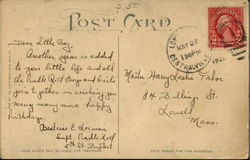 9.50
POST CARD
Dear Little Boy.
Another year is added
to your little life and all
the Cradle Roll Boys and Girls
join together in wishing you
many many more happy
birthdays.
Beatrice E. Lorman
Supt. Cradle Roll
5th St. Baptist
MAY 27
1 30 PM
CENTRALVILLE
Master Harry Leslie Tabor
84 Billings St.
Lowell
Mass.